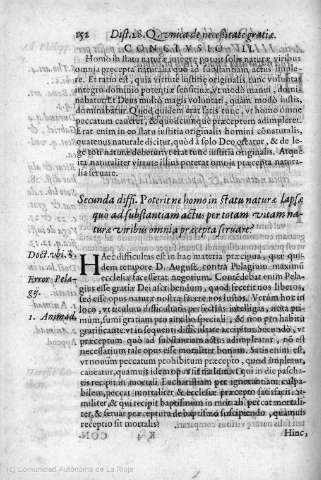 152 Dist. 28. Q. vnica de necessitate gratiæ.
CONCLVSIO III.
Homo in statu naturæ integræ potuit solis naturæ viribus
omnia præcepta naturalia quo ad substantiam actus imple
re. Et ratio est, quia virtute iustitiæ originalis, tunc volunta
integro dominio potentiæ sensitiuæ, vt modò manui, domi
nabatur: Et Deus multò magis voluntati, quàm modò iustis,
dominabatur. Quod quidem erat satis tunc, vt homo omne
peccatum caueret, & quodcunque præceptum adimpleret.
Erat enim in eo statu iustitia originalis homini connaturalis,
quatenus naturale dicitur, quod à solo Deo
natura naturaliter virtute illius poterat omnia præcepta natura
lia seruare.
Secunda diffi. Poterit ne homo in statu naturæ lapsæ
quo ad substantiam actus per totam vitam na-
turæ viribus omnia præcepta seruare?
Doct. vbi. s.
Error Pela-
gy.
1. Animad.
Hæc difficultas est in hac materia præcipua, quæ qui-
dem tempore D. August. contra Pelagium maximi
ecclesiæ facesserat negotium. Concedebat enim Pela-
gius esse gratiæ Dei ascribendum, quod fecerit nos liberos,
sed esse opus naturæ nostræ facere nos iustos. Verùm hoc in
loco, vt titulus difficultatis perfectius intelligatur, nota pri-
mum, sumi gratiam pro auxilio speciali, & non pro habitu
gratificante, vt in sequenti difficultate accipitur. Secundò, vt
præceptum quo ad substantiam actus adimpleatur, nō est
necessarium tale opus esse moraliter bonum. Satis enim est,
vt non im peccatum prohibitum præcepto, quod implemus
caueatur, quamuis idem opus vitiosum sit: vt quia in die pascha-
tis recipit in mortali Eucharistiam per ignorantiam culpa-
bilem, peccat mortaliter & ecclesiæ præcepto satisfacit: si-
militer & qui recipit baptismum in mortali peccat mortali-
ter, & seruat præceptum de baptismo suscipiendo, quamuis
receptio sit mortalis.
K 4
Hinc,
(C) Comunidad Autónoma de La Rioja